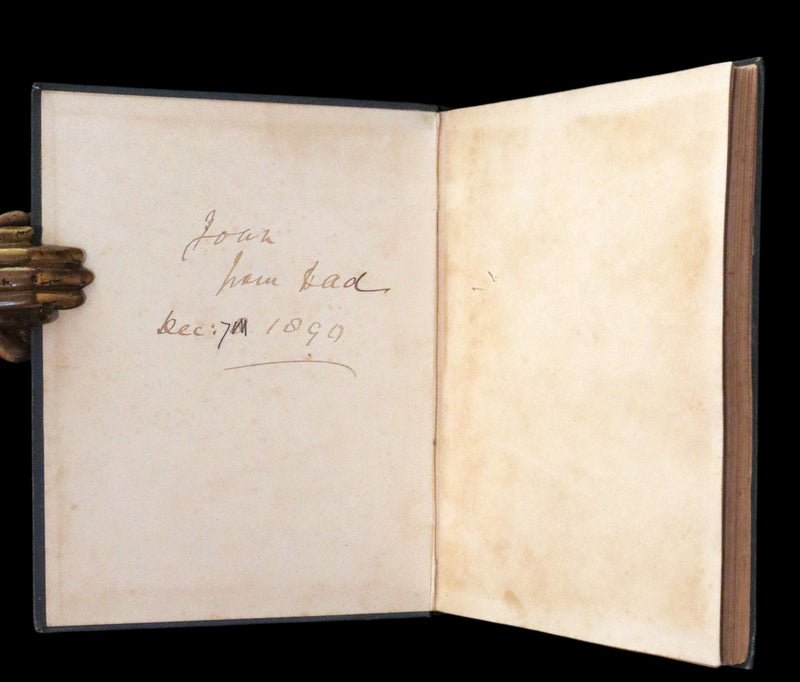 Joan
from Dad.
Dec: 7th 1890